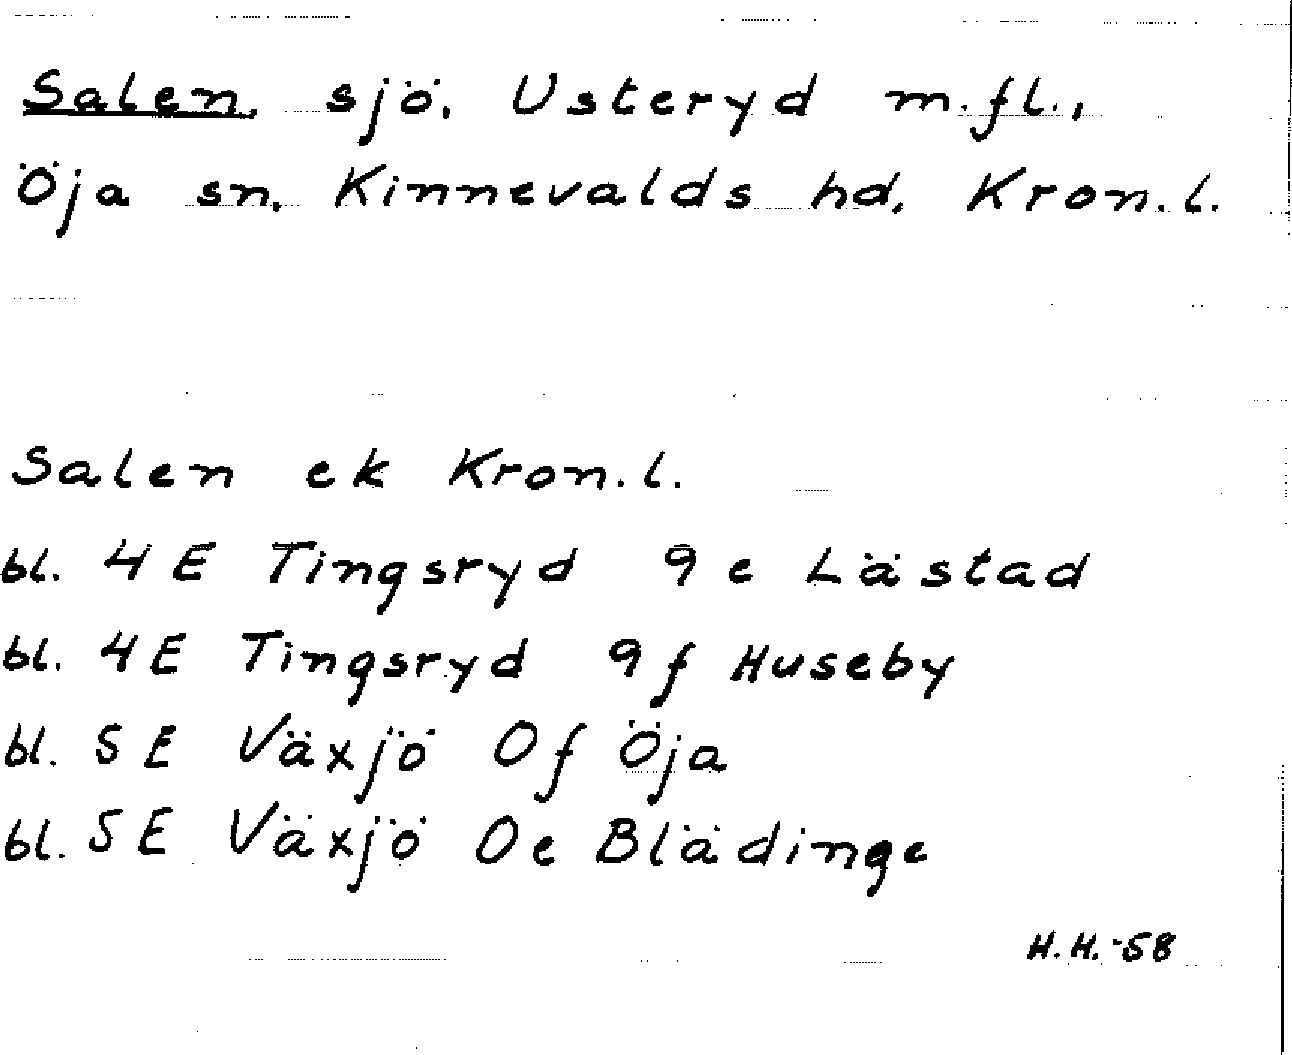 Salen, sjö, Usteryd m.fl.,
Öja sn, Kinnevalds hd, Kron.l.
Salen ek Kron.l.
bl. 4 E Tingsryd 9 e Lästad
bl. 4 E Tingsryd 9f Huseby
bl. 5 E Växjö 0f Öja
bl. 5 E Växjö 0e Blädinge
H.H.-58